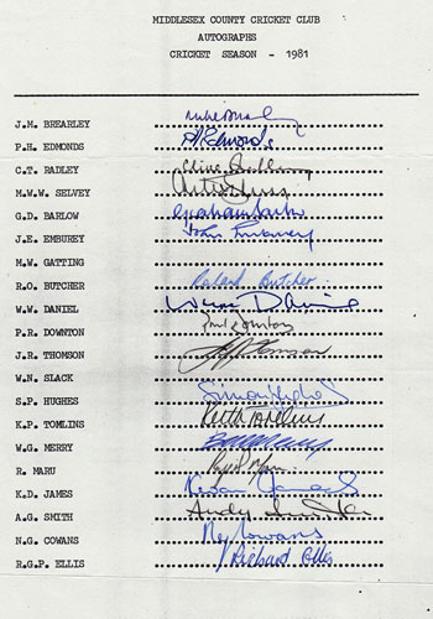 MIDDLESEX COUNTY CRICKET CLUB
AUTOGRAPHS
CRICKET SEASON - 1981
J.M. BREARLEY
P.H. EDMONDS
C.T. RADLEY Clive Radley
M.W.W. SELVEY
G.D. BARLOW Graham Barlow
J.E. EMBUREY John Emburey
M.W. GATTING
R.O. BUTCHER Roland Butcher
W.W. DANIEL
P.R. DOWNTON
J.R. THOMSON
W.N. SLACK
S.P. HUGHES Simon Hughes
K.P. TOMLINS Keith Tomlins
W.G. MERRY
R. MARU
K.D. JAMES Kevan James
A.G. SMITH Andy Smith
N.G. COWANS
R.G.P. ELLIS Richard Ellis